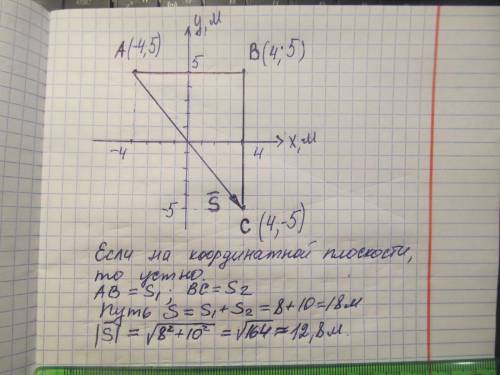 y, м
A(-4,5) 5 B(4; 5)
-4 4 x, м
-5 S̅ C (4,-5)
Если на координатной плоскости,
то устно.
AB = S₁; BC = S₂
Путь S = S₁ + S₂ = 8 + 10 = 18 м
|S̅| = √8² + 10² = √164 ≈ 12,8 м.